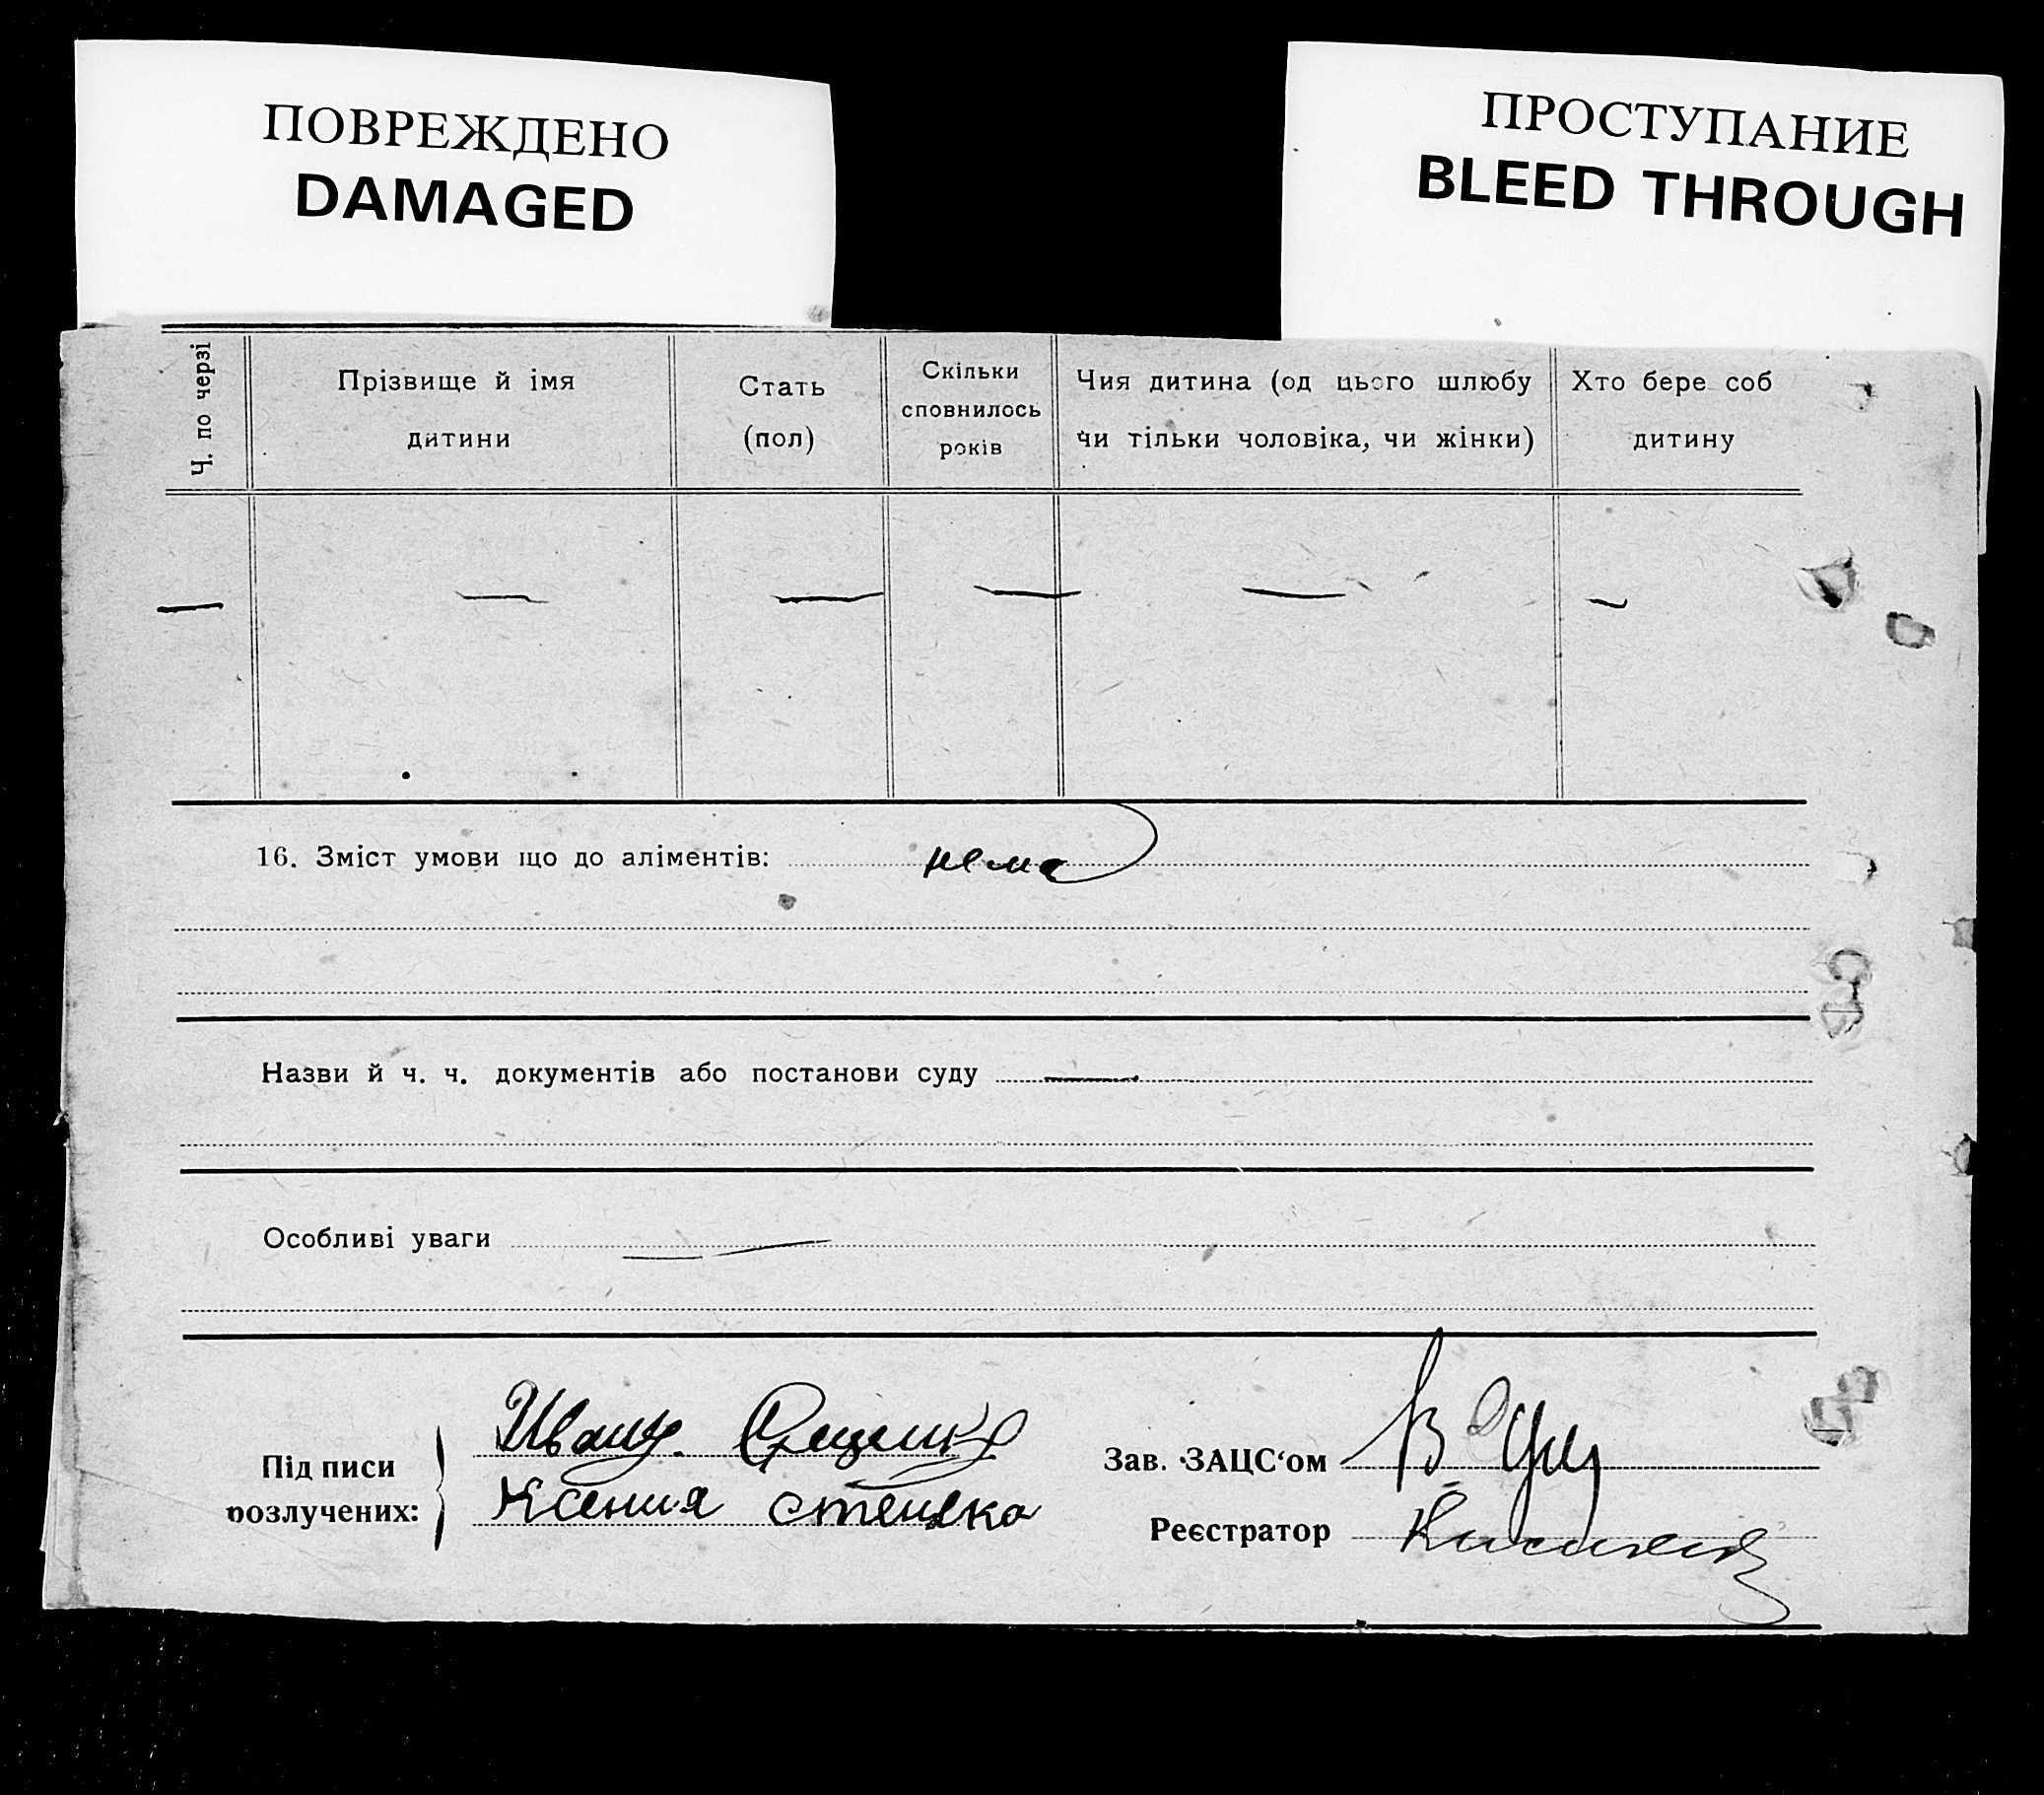 ПОВРЕЖДЕНО
DAMAGED
ПРОСТУПАНИЕ
BLEED THROUGH
Ч. по черзі
Прізвище й імя
дитини
Стать
(пол)
Скільки
сповнилось
років
Чия дитина (од цього шлюбу
чи тільки чоловіка, чи жінки)
Хто бере соб
дитину
16. Зміст умови що до аліментів: нема
Назви й ч. ч. документів або постанови суду —
Особливі уваги —
Підписи
розлучених:
Ксения
Зав. ЗАЦС‘ом
Реєстратор